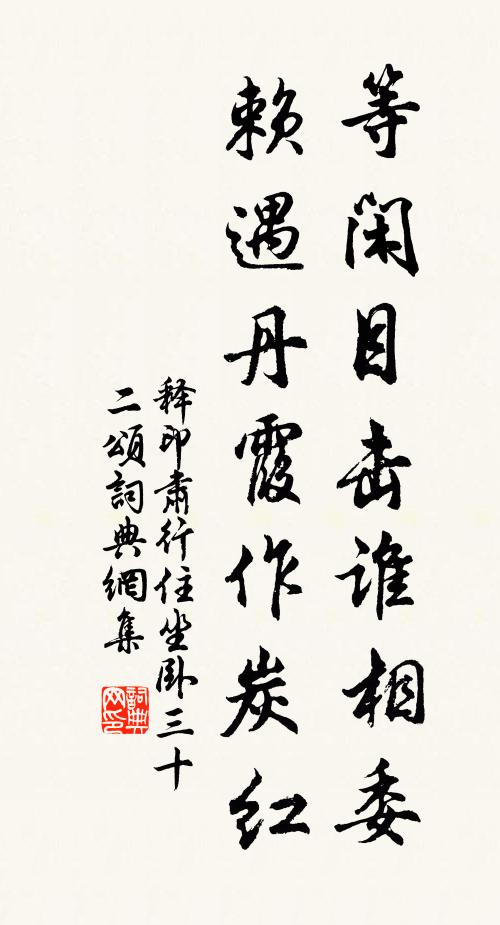 等閑目击谁相委
赖遇丹霞作炭红
释印肃行住坐卧三十
二頌詞典網集
詞典
网印